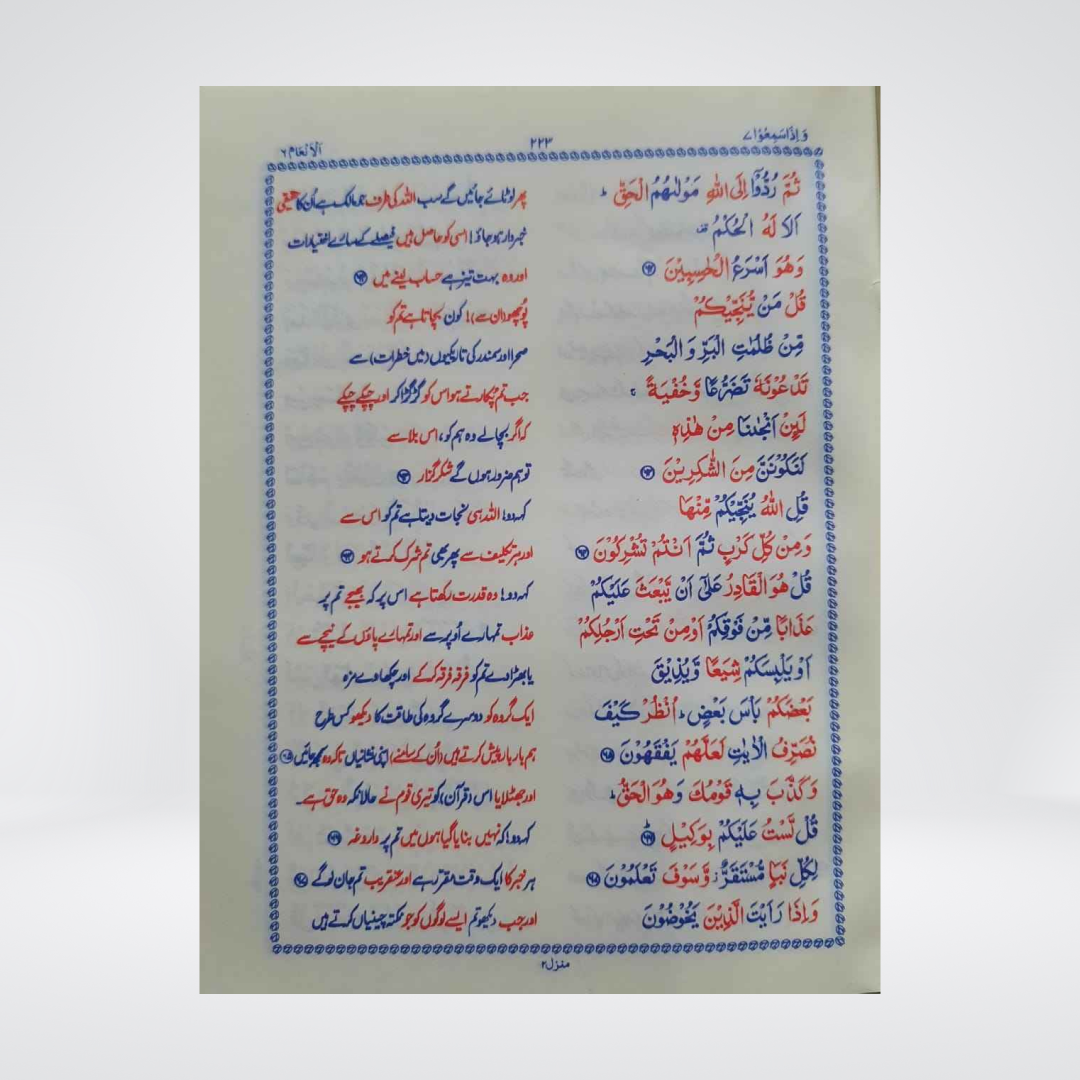 وَإِذَا سَمِعُوْا ٧ ٢٢٣ اَلْاَنْعَام ٦
ثُمَّ رُدُّوْٓا اِلَى اللّٰهِ مَوْلٰىهُمُ الْحَقِّ ؕ پھر لوٹائے جائیں گے سب اللہ کی طرف جو مالک ہے اُن کا حقیقی
اَلَا لَهُ الْحُكْمُ خبردار ہو جاؤ! اسی کو حاصل ہیں فیصلے کے سارے اختیارات
وَهُوَ اَسْرَعُ الْحٰسِبِيْنَ ﴿۶۲﴾ اور وہ بہت تیز ہے حساب لینے میں ﴿۶۲﴾
قُلْ مَنْ يُّنَجِّيْكُمْ پُوچھو (ان سے)! کون بچاتا ہے تم کو
مِّنْ ظُلُمٰتِ الْبَرِّ وَالْبَحْرِ صحرا اور سمندر کی تاریکیوں (میں خطرات) سے
تَدْعُوْنَهٗ تَضَرُّعًا وَّخُفْيَةً ۚ جب تم پُکارتے ہو اس کو گڑگڑا کر اور چپکے چپکے
لَىِٕنْ اَنْجٰىنَا مِنْ هٰذِهٖ کہ اگر بچالے وہ ہم کو، اس بلا سے
لَنَكُوْنَنَّ مِنَ الشّٰكِرِيْنَ ﴿۶۳﴾ تو ہم ضرور ہوں گے شکر گزار ﴿۶۳﴾
قُلِ اللّٰهُ يُنَجِّيْكُمْ مِّنْهَا کہہ دو! اللہ ہی نجات دیتا ہے تم کو اس سے
وَمِنْ كُلِّ كَرْبٍ ثُمَّ اَنْتُمْ تُشْرِكُوْنَ ﴿۶۴﴾ اور ہر تکلیف سے پھر بھی تم شرک کرتے ہو ﴿۶۴﴾
قُلْ هُوَ الْقَادِرُ عَلٰٓى اَنْ يَّبْعَثَ عَلَيْكُمْ کہہ دو! وہ قدرت رکھتا ہے اس پر کہ بھیجے تم پر
عَذَابًا مِّنْ فَوْقِكُمْ اَوْ مِنْ تَحْتِ اَرْجُلِكُمْ عذاب تمہارے اُوپر سے اور تمہارے پاؤں کے نیچے سے
اَوْ يَلْبِسَكُمْ شِيَعًا وَّيُذِيْقَ یا بھڑا دے تم کو فرقہ فرقہ کرکے اور چکھا دے مزہ
بَعْضَكُمْ بَاْسَ بَعْضٍ ؕ اُنْظُرْ كَيْفَ ایک گروہ کو دوسرے گروہ کی طاقت کا دیکھو کس طرح
نُصَرِّفُ الْاٰيٰتِ لَعَلَّهُمْ يَفْقَهُوْنَ ﴿۶۵﴾ ہم بار بار پیش کرتے ہیں (اُن کے سامنے) اپنی نشانیاں تاکہ وہ سمجھ جائیں ﴿۶۵﴾
وَكَذَّبَ بِهٖ قَوْمُكَ وَهُوَ الْحَقُّ ؕ اور جھٹلایا اس (قرآن) کو تیری قوم نے حالانکہ وہ حق ہے۔
قُلْ لَّسْتُ عَلَيْكُمْ بِوَكِيْلٍ ﴿۶۶﴾ کہہ دو! کہ نہیں بنایا گیا ہوں میں تم پر داروغہ ﴿۶۶﴾
لِكُلِّ نَبَاٍ مُّسْتَقَرٌّ ؗ وَّسَوْفَ تَعْلَمُوْنَ ﴿۶۷﴾ ہر خبر کا ایک وقت مقرر ہے اور عنقریب تم جان لوگے ﴿۶۷﴾
وَاِذَا رَاَيْتَ الَّذِيْنَ يَخُوْضُوْنَ اور جب دیکھو تم ایسے لوگوں کو جو نکتہ چینیاں کرتے ہیں
منزل ٢